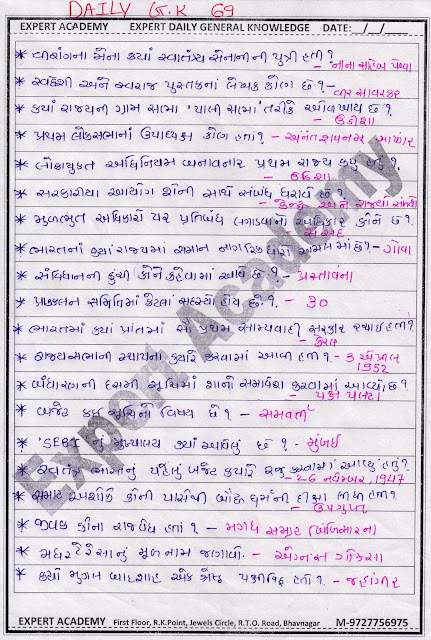 DAILY G.K 69
EXPERT ACADEMY EXPERT DAILY GENERAL KNOWLEDGE DATE: __/__/____
* વીરાંગના મેના કયાં સ્વાતંત્ર્ય સેનાનીની પુત્રી હતી? - નાના સાહેબ પેશ્વા
* સ્વદેશી અને સ્વરાજ પુસ્તકનાં લેખક કોણ છે? - વીર સાવરકર
* કયાં રાજ્યની ગ્રામ સભા 'પાલી સભા' તરીકે ઓળખાય છે? - ઉડીશા
* પ્રથમ લોકસભાનાં ઉપાધ્યક્ષ કોણ હતાં? - અનંતશયનમ આયંગર
* લોકાયુક્ત અધિનિયમ બનાવનાર પ્રથમ રાજ્ય કયું હતું? - ઉડીશા
* સરકારીયા આયોગ શેની સાથે સંબંધ ધરાવે છે? - કેન્દ્ર અને રાજ્યો સાથે
* મૂળભુત અધિકારો પર પ્રતિબંધ લગાડવાનો અધિકાર કોને છે? - સંસદ
* ભારતનાં કયાં રાજ્યમાં સમાન નાગરિક ધારો અમલમાં છે? - ગોવા
* સંવિધાનની કુંચી કોને કહેવામાં આવે છે? - પ્રસ્તાવના
* પ્રાક્કલન સમિતિમાં કેટલાં સદસ્યો હોય છે? - 30
* ભારતમાં કયાં પ્રાંતમાં સૌ પ્રથમ સામ્યવાદી સરકાર રચાઇ હતી? - કેરળ
* રાજ્યસભાની સ્થાપના ક્યારે કરવામાં આવી હતી? - 3 એપ્રિલ 1952
* બંધારણની દસમી સૂચિમાં શાનો સમાવેશ કરવામાં આવ્યો છે? - પક્ષ પલટા
* બજેટ કઇ સૂચિનો વિષય છે? - સમવર્તી
* 'SEBI' નું મુખ્યાલય ક્યાં આવેલું છે? - મુંબઇ
* સ્વતંત્ર ભારતનું પહેલું બજેટ ક્યારે રજૂ કરવામાં આવ્યું હતું? - 26 નવેમ્બર, 1947
* સમ્રાટ અશોકે કોની પાસેથી બૌદ્ધ ધર્મની દીક્ષા લીધી હતી? - ઉપગુપ્ત
* જીવક કોના રાજવૈદ્ય હતાં? - મગધ સમ્રાટ (બિંબિસારનાં)
* મધર ટેરેસાનું મૂળ નામ જણાવો. - એગ્નસ ગોંકસા
* કયો મુઘલ બાદશાહ એક શ્રેષ્ઠ પક્ષીવિદ્દ હતો? - જહાંગીર
Expert Academy
EXPERT ACADEMY First Floor, R.K.Point, Jewels Circle, R.T.O. Road, Bhavnagar M-9727756975